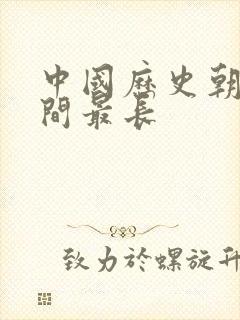 中國歷史朝
間最長
致力於螺旋升